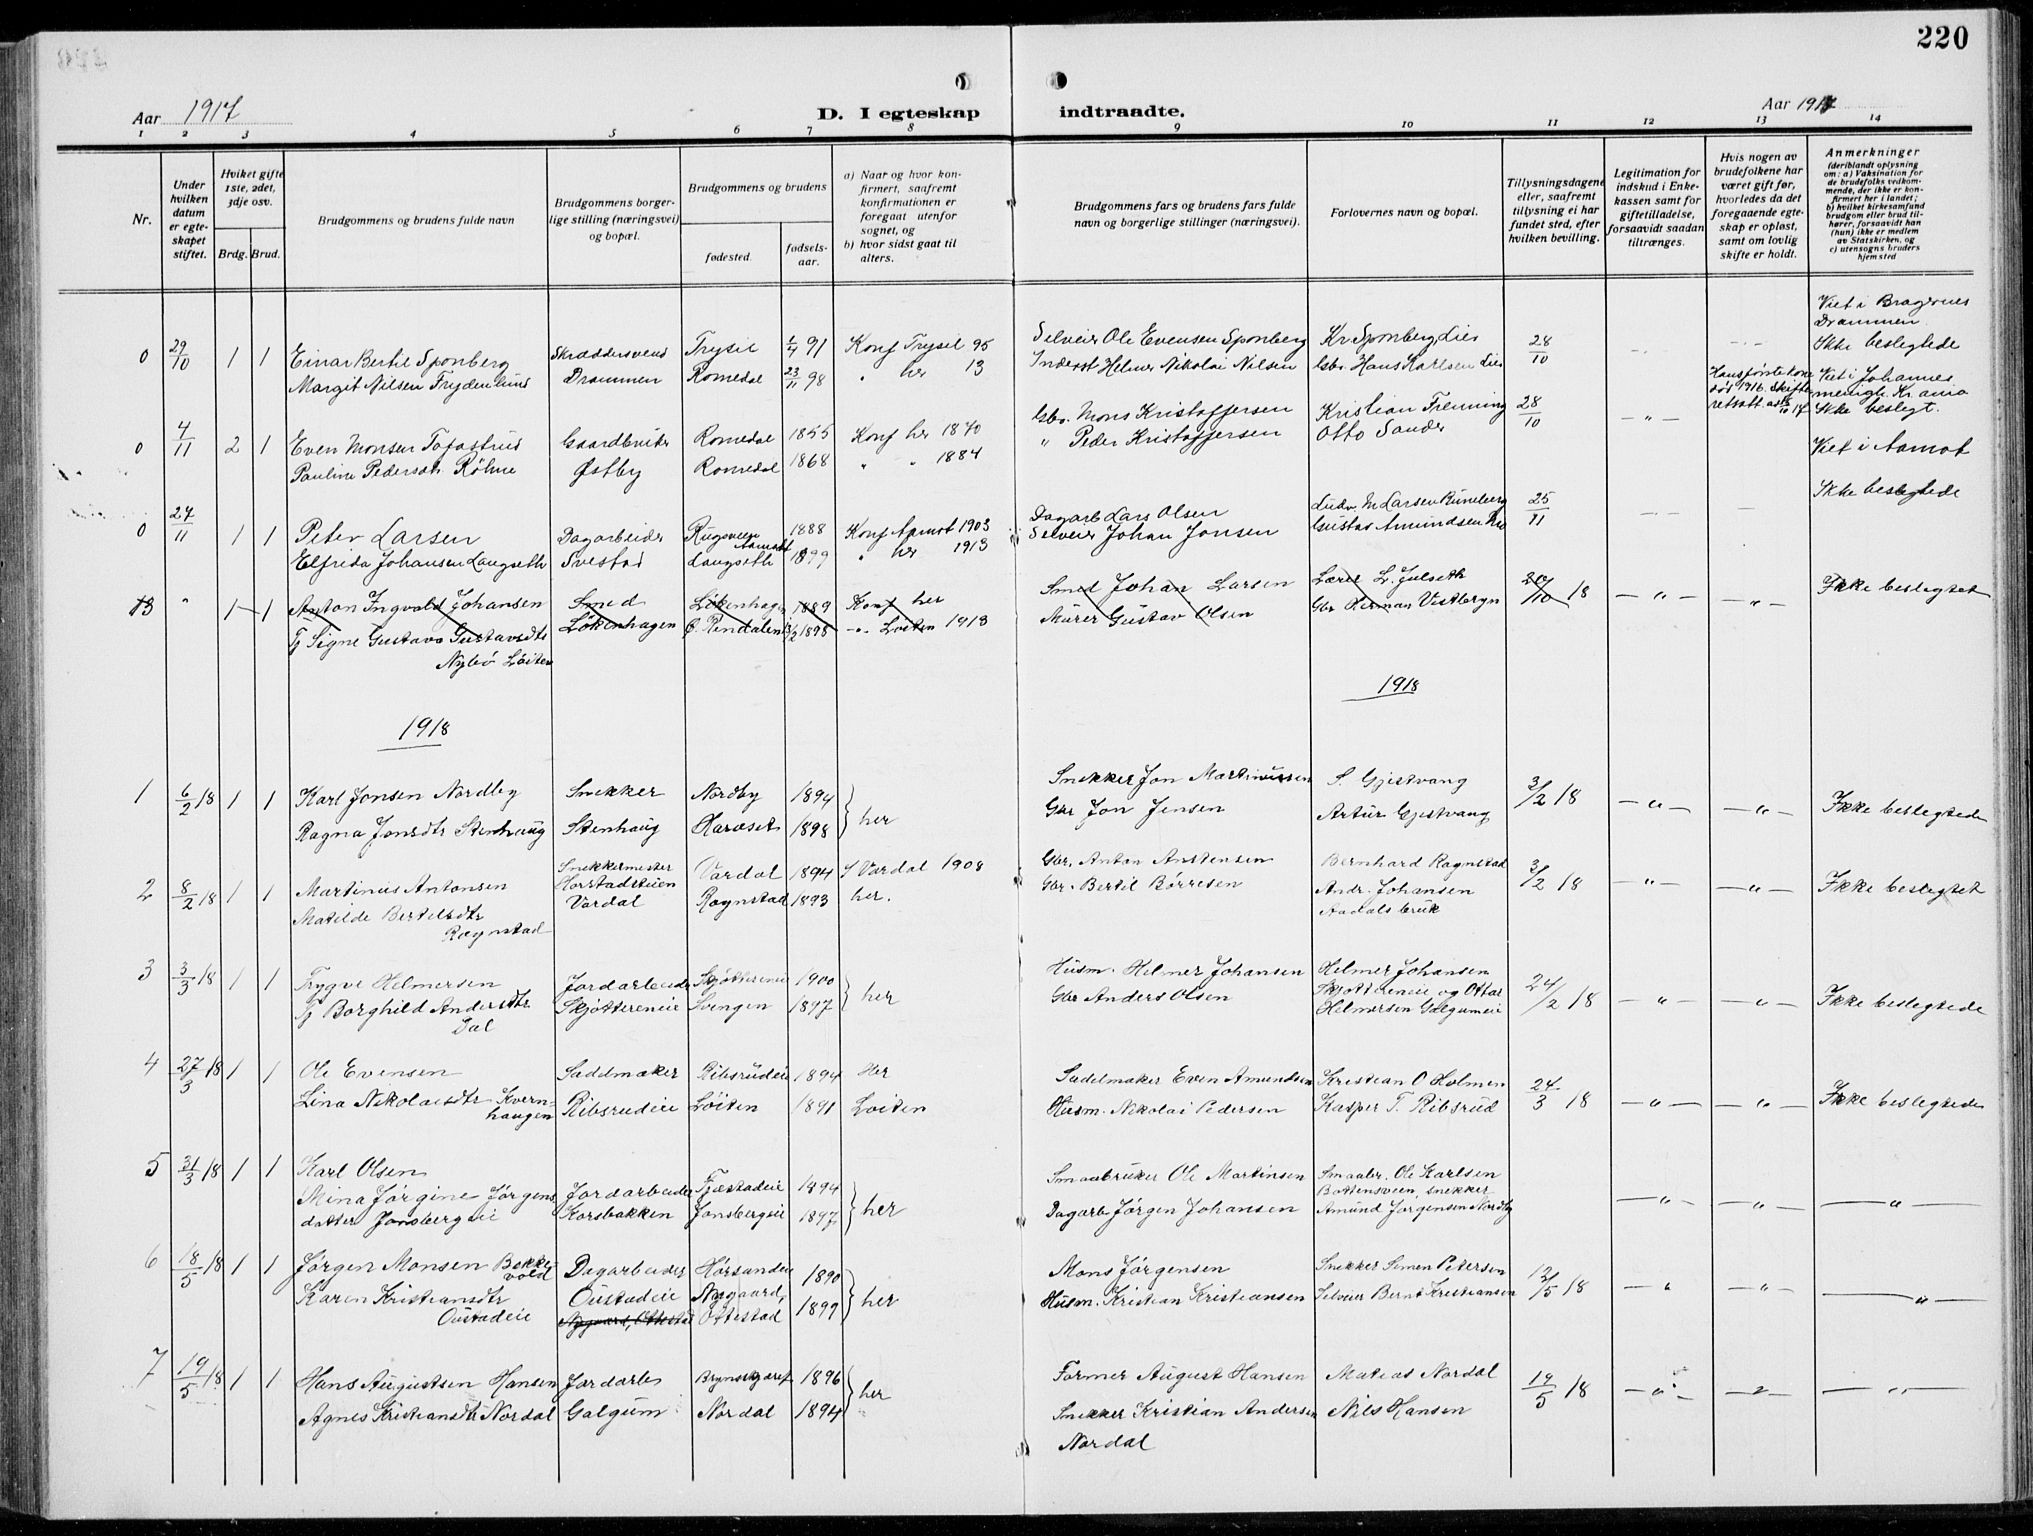 220
Aar 1917
D. I egteskap
indtraadte.
Aar 1917
1 2 3 4 5 6 7 8 9 10 11 12 13 14
Nr.
Under hvilken datum er egteskapet stiftet.
Hviket gifte 1ste, 2det, 3dje osv.
Brdg. Brud.
Brudgommens og brudens fulde navn
Brudgommens borgerlige stilling (næringsvei) og bopæl.
Brudgommens og brudens
fødested.
fødselsaar.
a) Naar og hvor konfirmert, saafremt konfirmationen er foregaat utenfor sognet, og
b) hvor sidst gaat til alters.
Brudgommens fars og brudens fars fulde navn og borgerlige stillinger (næringsvei).
Forlovernes navn og bopæl.
Tillysningsdagene eller, saafremt tillysning ei har fundet sted, efter hvilken bevilling.
Legitimation for indskud i Enkekassen samt for giftetilladelse, forsaavidt saadan tiltrænges.
Hvis nogen av brudefolkene har været gift før, hvorledes da det foregaaende egteskap er opløst, samt om lovlig skifte er holdt.
Anmerkninger (deriblandt oplysning om: a) Vaksination for de brudefolks vedkommende, der ikke er konfirmert her i landet; b) hvilket kirkesamfund brudgom eller brud tilhører, forsaavidt han (hun) ikke er medlem av Statskirken, og c) utensogns bruders hjemsted
Viet i Bragernes
Drammen
0 29/10 1 1 Einar Bertil Sponberg Skræddersvend Trysil 1/4 91 Konf Trysil 95 Selveier Ole Evensen Sponberg Kr Sponberg, Lies 28/10 Ikke beslegtede
Margit Nilsen Frydenlund Drammen Romedal 23/11 98 " her 13 Inderst Helmer Nikolai Nilsen Gbr. Hans Karlsen Lies
Hans første kone død 1916. Skifteretsatt.
Viet i Johannes menigh. Kr.ania
Ikke beslegt.
0 4/11 2 1 Even Monsen Tofastrud Gaardbruker Romedal 1855 Konf her 1870 Gbr. Mons Kristoffersen Kristian Frenning 28/10 - " -
Pauline Pedersdtr Røhne Østby Romedal 1868 " " 1884 " Peder Kristoffersen Otto Sander
Viet i Aamot
Ikke beslegtede
0 24/11 1 1 Peter Larsen Dagarbeider Rugsveen Aamot 1888 Konf Aamot 1903 Dagarb Lars Olsen Ludv. M Larsen Runeberg 25/11
Elfrida Johansen Langseth Svestad Langseth 1899 " her 1913 Selveier Johan Jonsen Gustav Amundsen
13 " 1 1 Anton Ingvald Johansen Smed Løkenhagen 1889 Konf her Smed Johan Larsen Lærer L. Julseth 20/10 18 - " - - " - Ikke beslegtet
Pj Signe Gustava Gustavsdtr Løkenhagen Ø. Rendalen 1898 -"- Løiten 1913 Murer Gustav Olsen Gbr Herman Vestbergn
Nybø Løiten
1918
1918
1 6/2 18 1 1 Karl Jonsen Nordby Snekker Nordby 1894 her Snekker Jon Martinussen S. Gjestvang 3/2 18 - " - - " - Ikke beslegtede
Ragna Jonsdtr Stenhaug Stenhaug Haraset 1898 Gbr Jon Jensen Artur Gjestvang
2 8/2 18 1 1 Martinus Antonsen Snekkermester Horstadsteien Vardal Vardal 1894 I Vardal 1908 Gbr. Anton Anstensen Bernhard Ragnstad 3/2 18 - " - - " - Ikke beslegtet
Matilde Bertelsdtr Ragnstad Ragnstad 1893 her. Gbr. Bertil Børresen Andr. Johansen
Aadals bruk
3 3/3 18 1 1 Trygve Helmersen Jordarbeider Skjøttereneie 1900 her Husm. Helmer Johansen Helmer Johansen 24/2 18 - " - - " - Ikke beslegtede
Pj Borghild Andersdtr Dal Skjøttereneie Svingen 1897 Gbr Anders Olsen Skjøttereneie og Ottar
Helmersen Galgumeie
4 27/3 18 1 1 Ole Evensen Sadelmaker Ribsrudeie 1894 Her Sadelmaker Even Amundsen Kristian O Holmen 24/3 18 - " - - " - Ikke beslegtede
Lina Nikolaisdtr Kvernhaugen Ribsrudeie Löiten 1891 Loiten Husm. Nikolai Pedersen Kasper T. Ribsrud
5 31/3 18 1 1 Karl Olsen Jordarbeider Fjæstadeie 1894 her Smaabruker Ole Martinsen Smaabr. Ole Karlsen - " - - " - - " -
Mina Jørgine Jørgensdatter Jonsbergeie Korsbakken Jonsbergeie 1897 Dagarb Jørgen Johansen Bottensveen, snekker
Amund Jørgensen Nordby
6 18/5 18 1 1 Jørgen Monsen Bekkevold Dagarbeider Hørsandeie 1890 her Mons Jørgensen Snekker Simen Petersen 12/5 18 - " - - " - - " -
Karen Kristiansdtr Oustadeie Oustadeie Nygaard, Ottestad 1899 Husm. Kristian Kristiansen Selveier Bernt Kristiansen
Nygaard, Ottestad
7 19/5 18 1 1 Hans Augustsen Hansen Jordarb Brynsbgaref 1896 her Former August Hansen Matias Nordal 19/5 18 - " - - " - - " -
Agnes Kristiansdtr Nordal Galgum Nordal 1894 Snekker Kristian Andersen Nils Hansen
Nordal